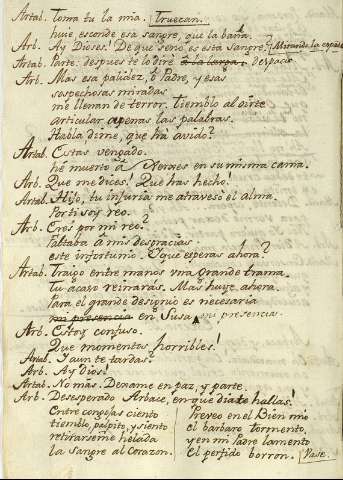 Artab. Toma tu la mia. Truecan.
huie esconde esa sangre, que la baña.
Arb. Ay Dioses! De que seno es esta sangre? Mirando la espada
Artab. Parte: despues te lo diré a la larga. despacio.
Arb. Mas esa palidez, ò Padre, y esas
sospechosas miradas
me llenan de terror. tiemblo al oirte
articular apenas las palabras.
Habla dime, que ha avido?
Artab. Estas vengado.
he muerto â Xerxes en su misma cama.
Arb. Que me dices! Que has hecho!
Artab. Hijo, tu injuria me atravesó el alma.
Por ti soy reo.
Arb. Eres por mi reo?
Faltaba a mis desgracias
este infortunio. Y que esperas ahora?
Artab. Traigo entre manos una grande trama.
Tu acaso reinarás. Mas huye ahora.
Para el grande designio es necesaria
mi presencia en Susa mi presencia.
Arb. Estoy confuso.
Que momentos horribles!
Artab. Y aun te tardas?
Arb. Ay dios!
Artab. No más. Dexame en paz, y parte.
Arb. Desesperado Arbace, en qué dia te hallas!
Entre congojas ciento
tiemblo, palpito, y siento
retirarseme helada
la sangre al corazon.
Preveo en el Bien mio
el barbaro tormento,
y en mi Padre lamento
El perfido borron. Vase.